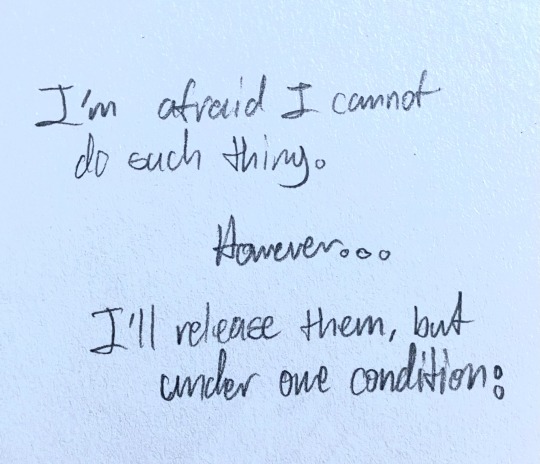 I'm afraid I cannot
do such thing.
However...
I'll release them, but
under one condition: